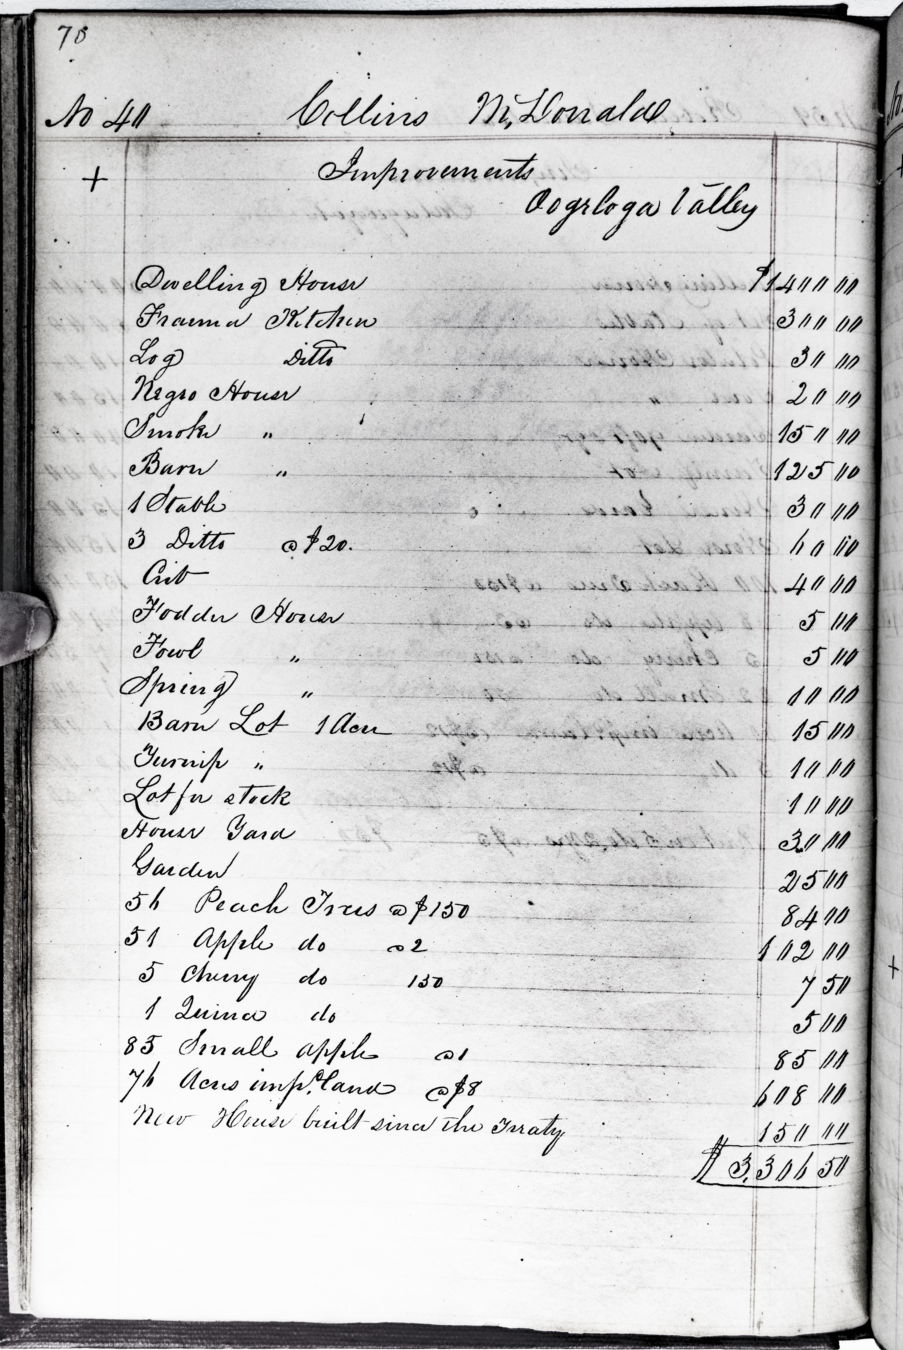 78
No 40 Collins McDonald
+ Improvements
Oogeloga Valley
Dwelling House $1400 00
Framed Kitchen 300 00
Log Ditto 30 00
Negro House 20 00
Smoke " 150 00
Barn " 125 00
1 Stable 30 00
3 Ditto @ $20. 60 00
Crib 40 00
Fodder House 5 00
Fowl " 5 00
Spring " 10 00
Barn Lot 1 Acre 15 00
Turnip " 10 00
Lot for stock 10 00
House Yard 30 00
Garden 25 00
56 Peach Trees @ $150 84 00
51 Apple do @ 2 102 00
5 Cherry do 150 7 50
1 Quince do 5 00
85 Small apple @ 1 85 00
76 Acres impd. land @ $8 608 00
New House built since the Treaty 150 00
$ 3,306 50